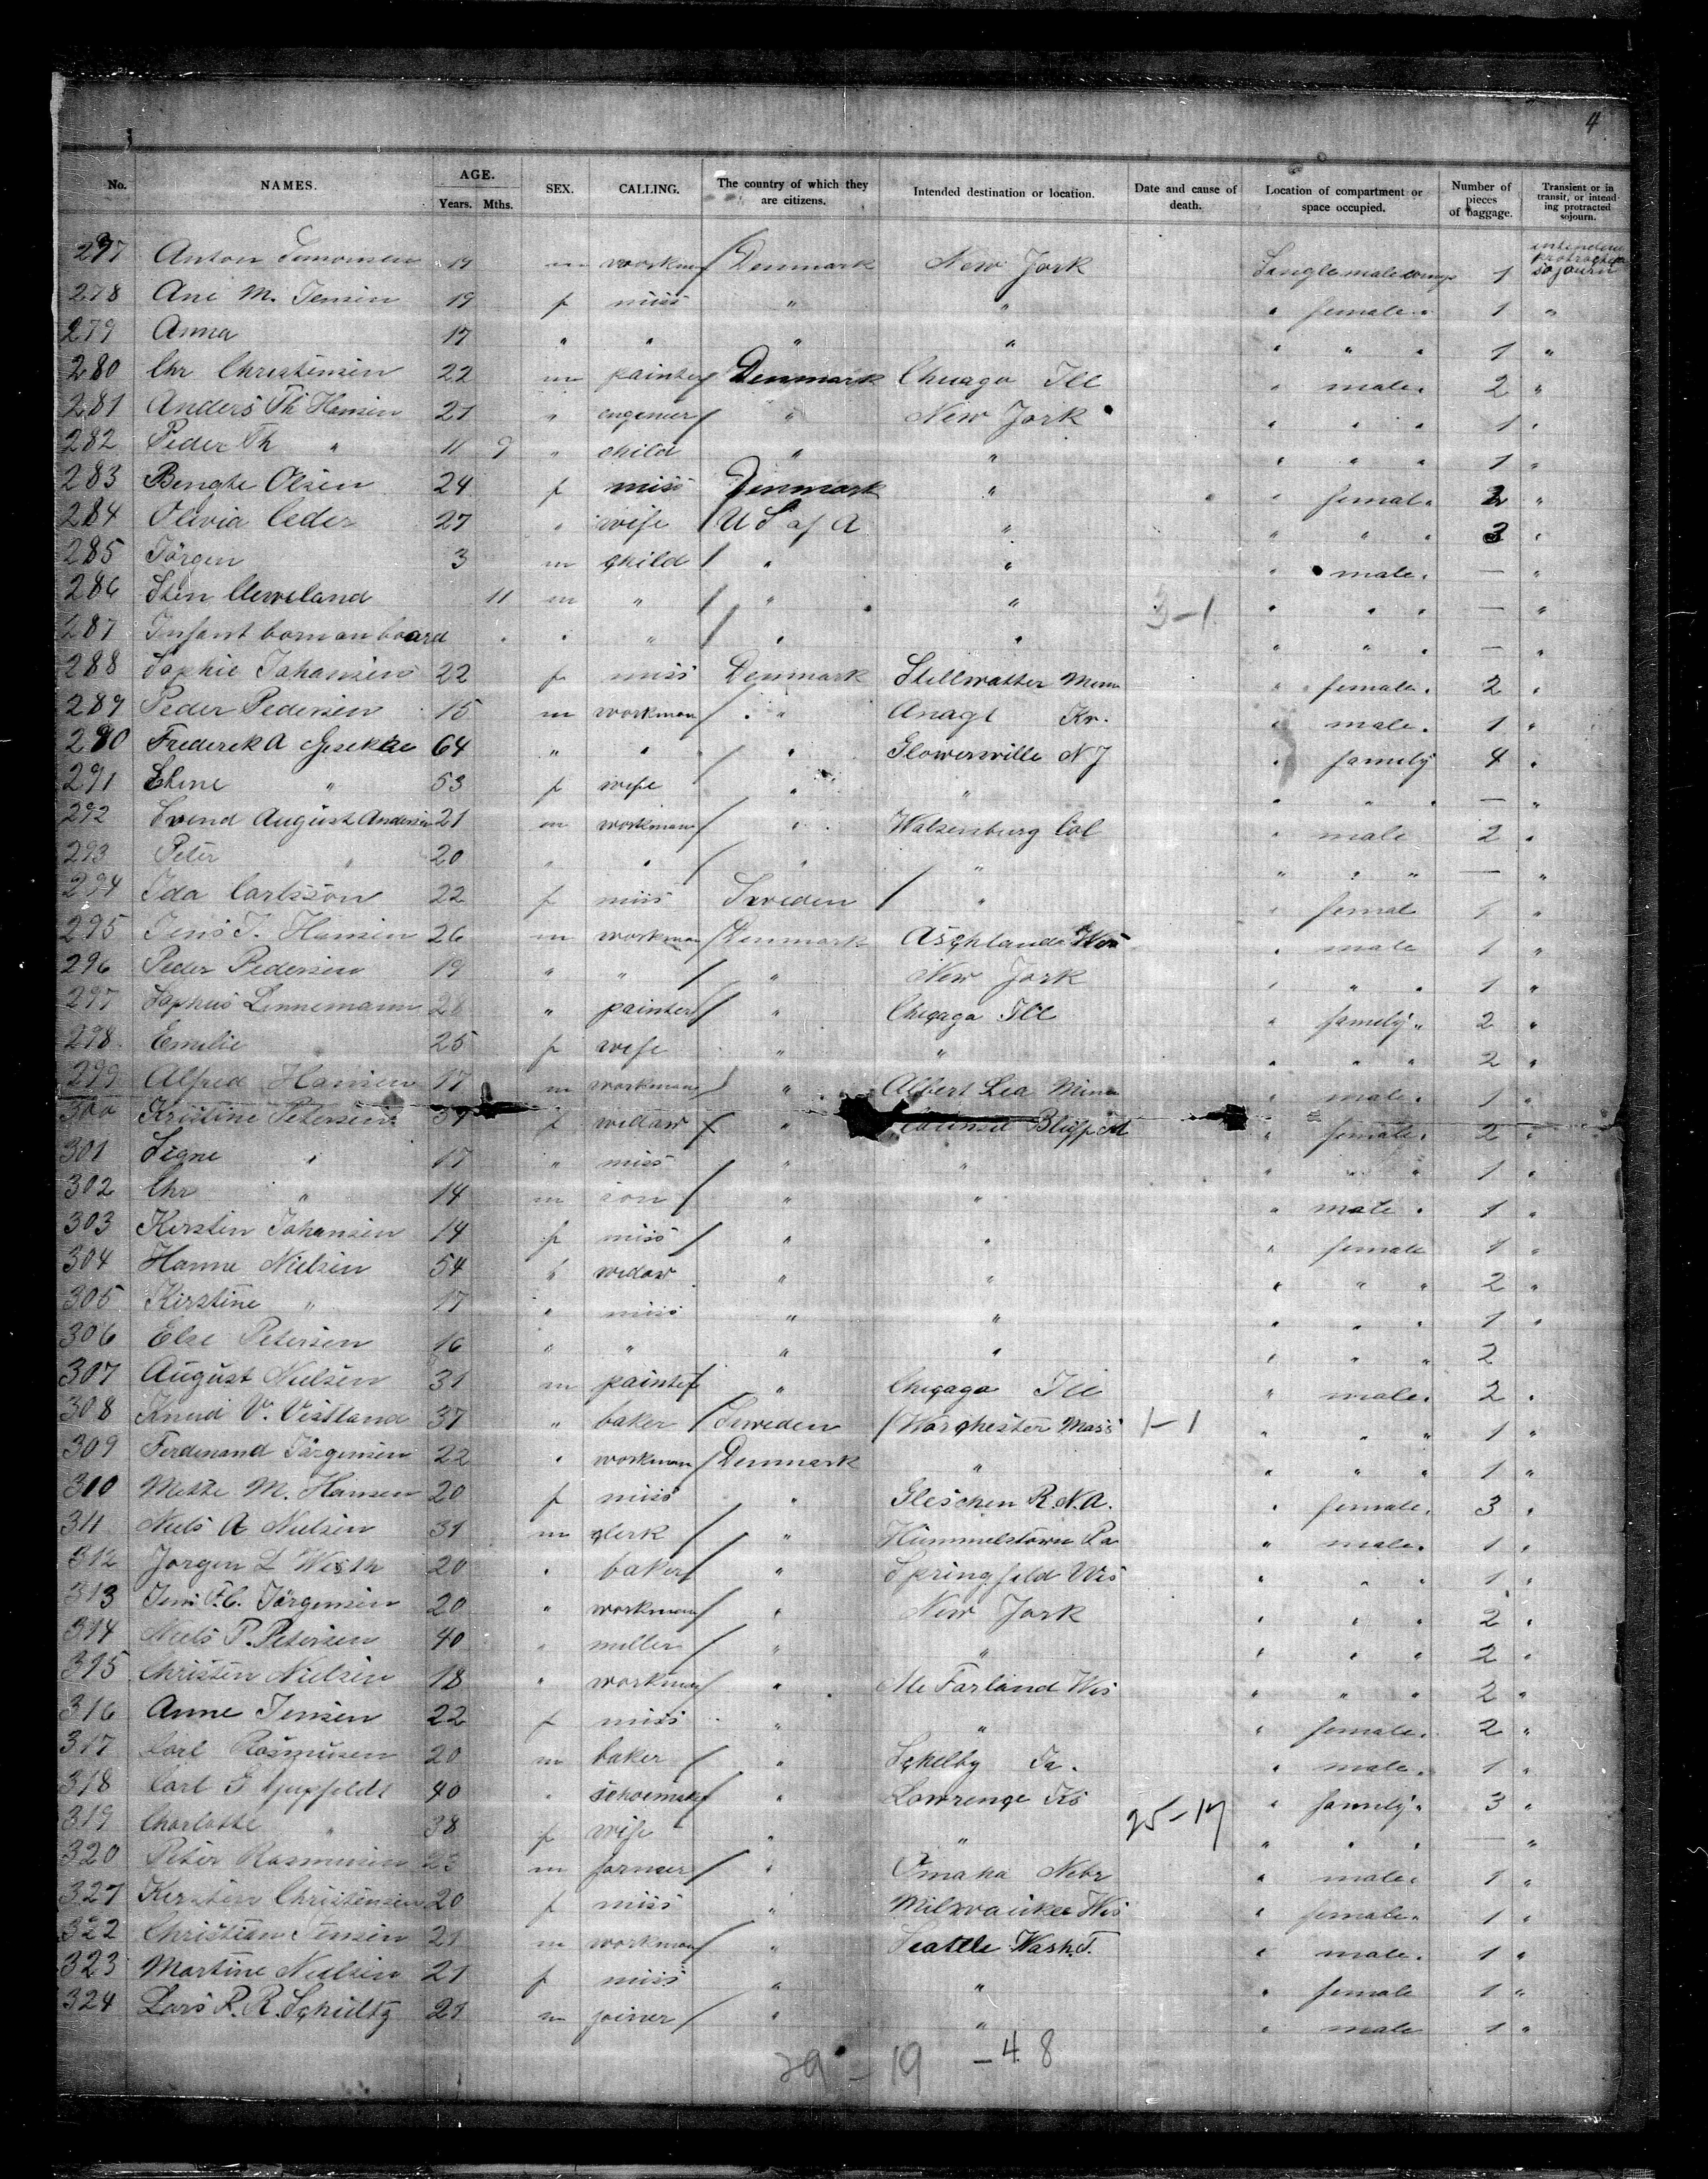 4
No. NAMES. AGE. Years. Mths. SEX. CALLING. The country of which they are citizens. Intended destination or location. Date and cause of death. Location of compartment or space occupied. Number of pieces of baggage. Transient or in transit, or intending protracted sojourn.
277 Anton Simonsen 19 m workman Denmark New York Single male 1 sojourn
278 Ane M. Jensen 19 f miss " " " female " 1 "
279 Anna 17 " " " " " " " 1 "
280 Chr Christensen 22 m painter Denmark Chicago Ill " male " 2 "
281 Anders Th Hansen 21 " engenier " New York " " " 1 "
282 Peder Th " 11 9 " child " " " " " 1 "
283 Bengte Olsen 24 f miss Denmark " " femal " 2 "
284 Olivia Ceder 27 " wife U S of A " " " " 3 "
285 Jörgen 3 m child " " " male " — "
286 Sten Cleveland 11 m " " " 3-1 " " " — "
287 Infant born on board " " " " " " " — "
288 Sophie Johansen 22 f miss Denmark Stillwatter Minn " female " 2 "
289 Peder Pedersen 15 m workman " " male " 1 "
290 Frederek A 64 " " " Glowersville N J " family 4 "
291 53 f wife " " " " " — "
292 Svend August Andersen 21 m workman " Walsenburg Col " male 2 "
293 Peter " 20 " " " " " " " — "
294 Ida Carlsson 22 f miss Sweden " " femal 1 "
295 Jens J. Hansen 26 m workman Denmark Aschlande Wis " male 1 "
296 Peder Pedersen 19 " " " New York " " " 1 "
297 Sophus Linnemann " painter " Chicago Ill " family " 2 "
298 Emilie 25 f wife " " " " " 2 "
299 Alfred Hansen 17 m workman " Albert Lea Minn " male " 1 "
300 Kristine Petersen f widow " Bluff " female " 2 "
301 Signe " 17 " miss " " " " " 1 "
302 Chr " 14 m son " " " male " 1 "
303 Kirsten Johansen 14 f miss " " " female 1 "
304 Hanne Nielsen 54 " widow " " " " " 2 "
305 Kirstine " 17 " miss " " " " " 1 "
306 Else Petersen 16 " " " " " " " 2
307 August Nielsen 31 m painter " Chicago Ill " male " 2 "
308 Knud V. Vestland 37 " baker Sweden Worchester Mass 1-1 " " " 1 "
309 Ferdinand Jörgensen 22 " workman Denmark " " " " 1 "
310 Mette M. Hansen 20 f miss " Gleschen R. N. A. " female " 3 "
311 Niels A Nielsen 31 m clerk " Hummelstown Pa " male " 1 "
312 Jorgen L Westh 20 " baker " Springfeld Wis " " " 1 "
313 Jens F. C. Jörgensen 20 " workman " New York " " " 2 "
314 Niels P. Petersen 40 " miller " " " " " 2 "
315 Christen Nielsen 18 " workman " Mc Farland Wis " " " 2 "
316 Anne Jensen 22 f miss " " " female " 2 "
317 Carl Rasmusen 20 m baker " Schelby Ia. " male " 1 "
318 Carl 40 " schoemaker " Lawrence Ks " family " 3 "
319 Charlotte " 38 f wife " " 25-17 " " " — "
320 Peter Rasmussen 23 m farmer " Omaha Nebr " male " 1 "
321 Kirsten Christensen 20 f miss " Milwauikee Wis " female " 1 "
322 Christian Jensen 21 m workman " Seattle Wash. T. " male " 1 "
323 Martine Nielsen 21 f miss " " " female 1 "
324 Lars P. R. Schultz 21 m joiner " " " male 1 "
29 - 19 - 48